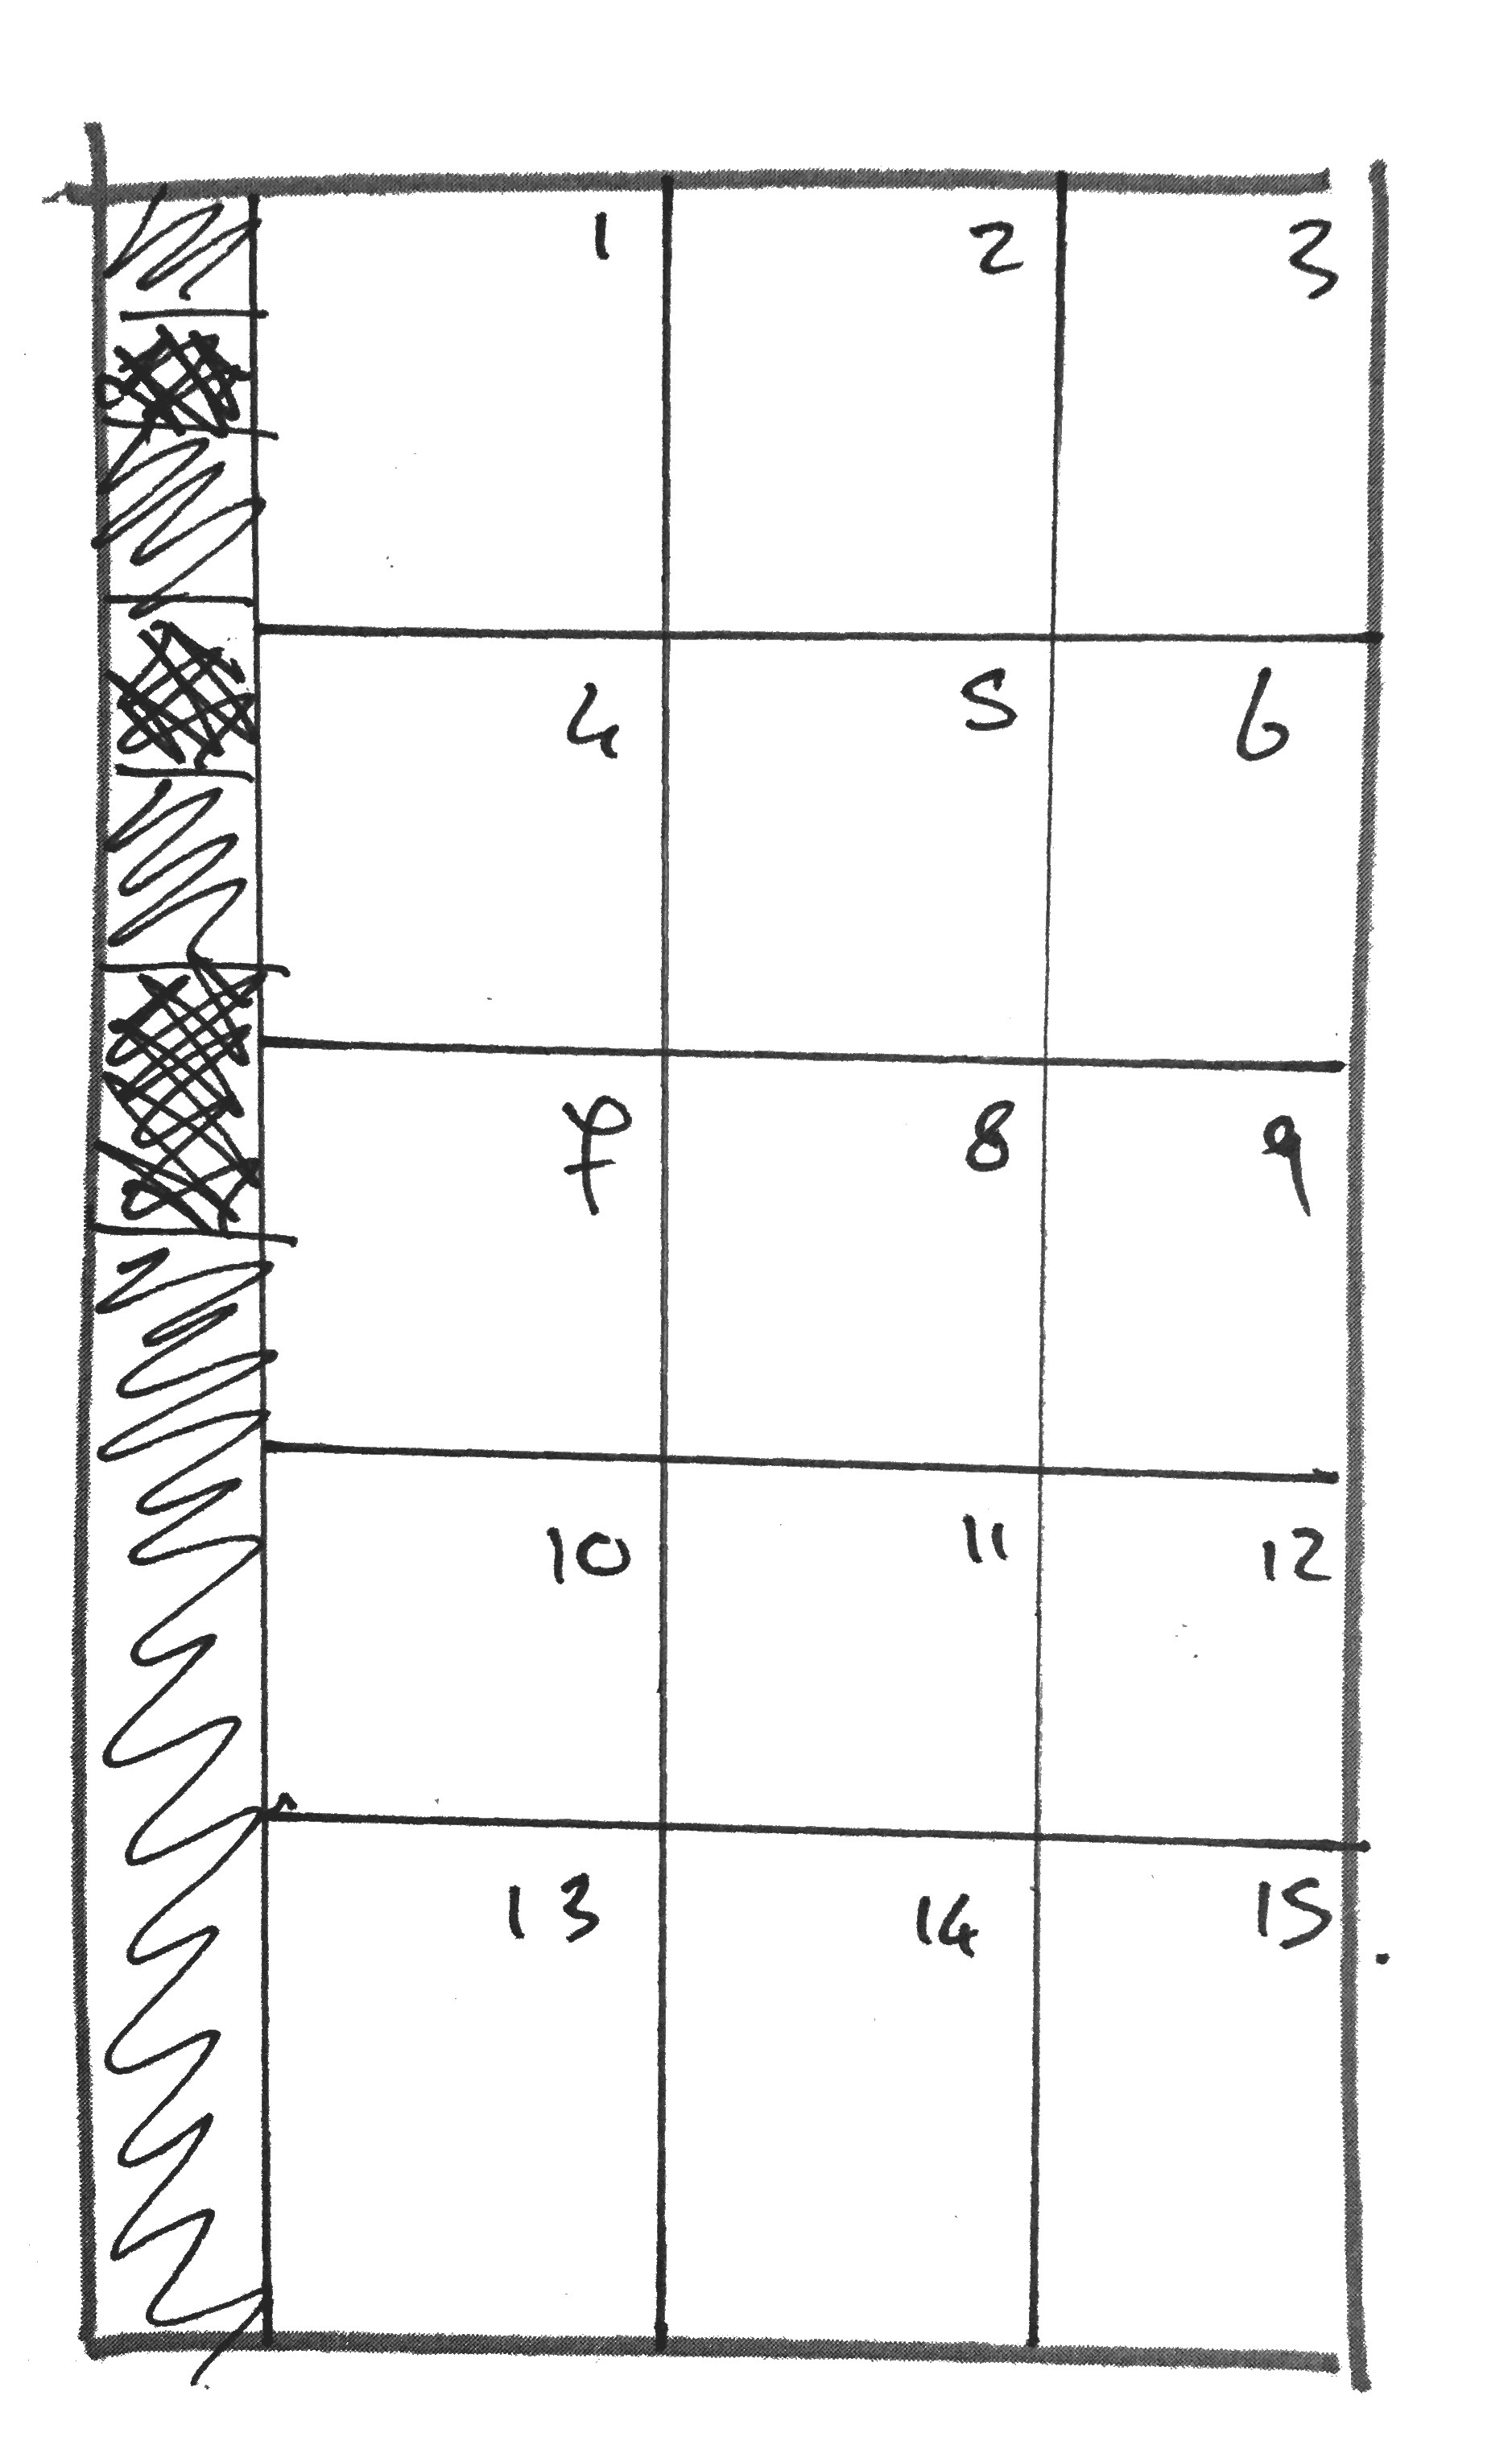 1 2 3
4 5 6
7 8 9
10 11 12
13 14 15